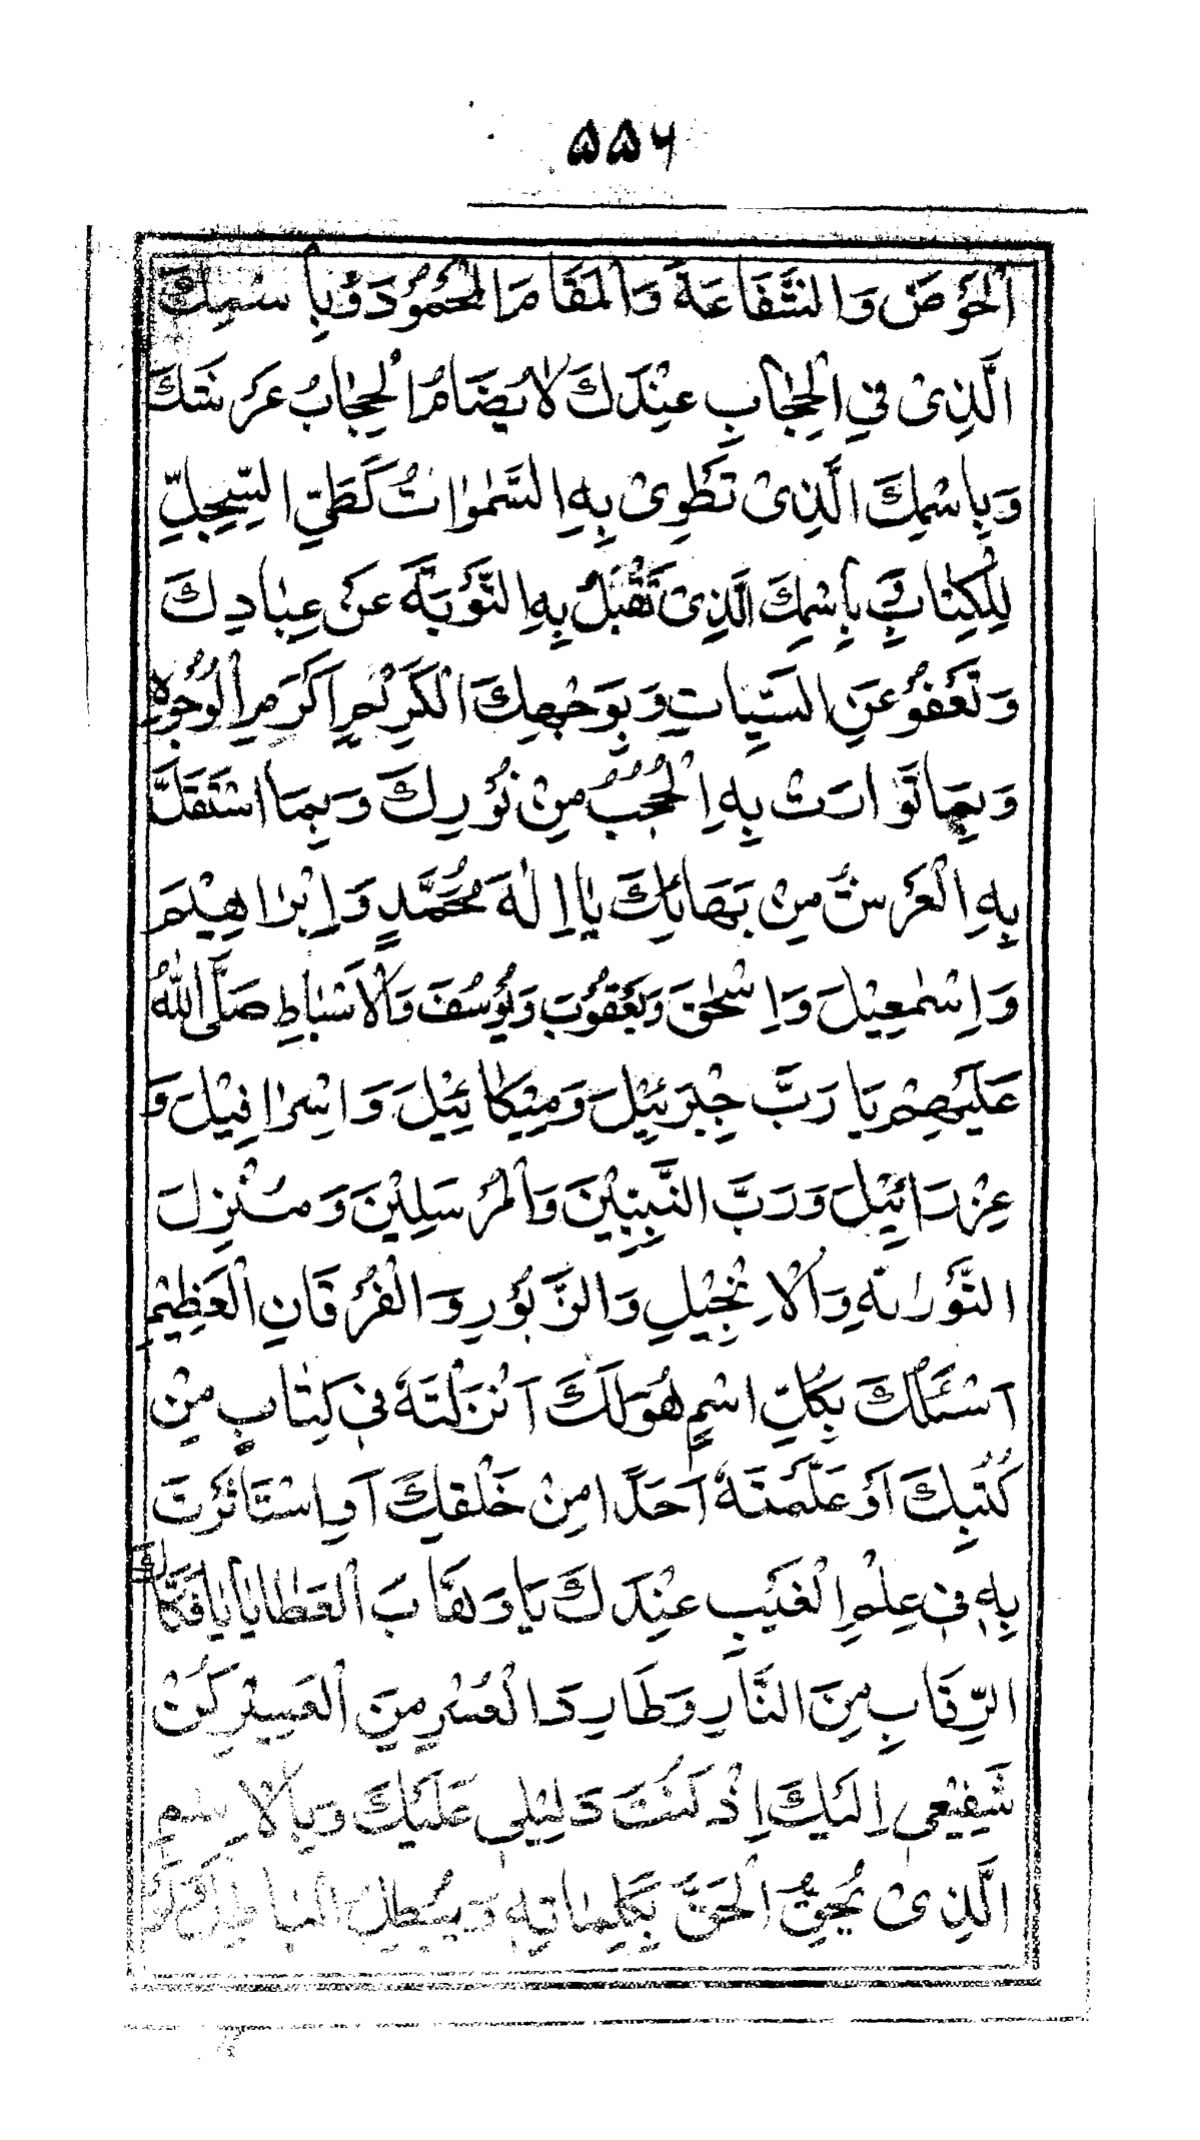 ۵۵۶
الْحَوْضَ وَالشَّفَاعَةَ وَالْمَقَامَ الْمَحْمُوْدَ وَبِاسْمِكَ
الَّذِیْ فِی الْحِجَابِ عِنْدَكَ لَا یُضَامُ الْحِجَابُ عَرْشَكَ
وَبِاسْمِكَ الَّذِیْ تَطْوِیْ بِهِ السَّمٰوَاتُ كَطَیِّ السِّجِلِّ
لِلْكِتَابِ بِاسْمِكَ الَّذِیْ تَقْبَلُ بِهِ التَّوْبَةَ عَنْ عِبَادِكَ
وَتَعْفُوْ عَنِ السَّیِّاٰتِ وَبِوَجْهِكَ الْكَرِیْمِ اَكْرَمِ الْوُجُوْهِ
وَبِمَا تَوَارَتْ بِهِ الْحُجُبُ مِنْ نُوْرِكَ وَبِمَا اسْتَقَلَّ
بِهِ الْعَرْشُ مِنْ بَهَائِكَ یَا اِلٰهَ مُحَمَّدٍ وَاِبْرَاهِیْمَ
وَاِسْمٰعِیْلَ وَاِسْحٰقَ وَیَعْقُوْبَ وَیُوْسُفَ وَالْاَسْبَاطِ صَلَّی اللّٰهُ
عَلَیْهِمْ یَا رَبَّ جِبْرَئِیْلَ وَمِیْكَائِیْلَ وَاِسْرَافِیْلَ وَ
عِزْرَائِیْلَ وَرَبَّ النَّبِیِّیْنَ وَالْمُرْسَلِیْنَ وَمُنْزِلَ
التَّوْرَاتَةِ وَالْاِنْجِیْلِ وَالزَّبُوْرِ وَالْفُرْقَانِ الْعَظِیْمِ
اَسْئَلُكَ بِكُلِّ اسْمٍ هُوَ لَكَ اَنْزَلْتَهٗ فِیْ كِتَابٍ مِنْ
كُتُبِكَ اَوْ عَلَّمْتَهٗ اَحَدًا مِنْ خَلْقِكَ اَوِ اسْتَاْثَرْتَ
بِهٖ فِیْ عِلْمِ الْغَیْبِ عِنْدَكَ یَا وَهَّابَ الْعَطَایَا یَا فَكَّاكَ
الرِّقَابِ مِنَ النَّارِ وَطَارِدَ الْعُسْرِ مِنَ الْعَسِیْرِ كُنْ
شَفِیْعِیْ اِلَیْكَ اِذْ كُنْتَ دَلِیْلِیْ عَلَیْكَ وَبِالْاِسْمِ
الَّذِیْ یُحِقُّ الْحَقَّ بِكَلِمَاتِهٖ وَیُبْطِلُ الْبَاطِلَ